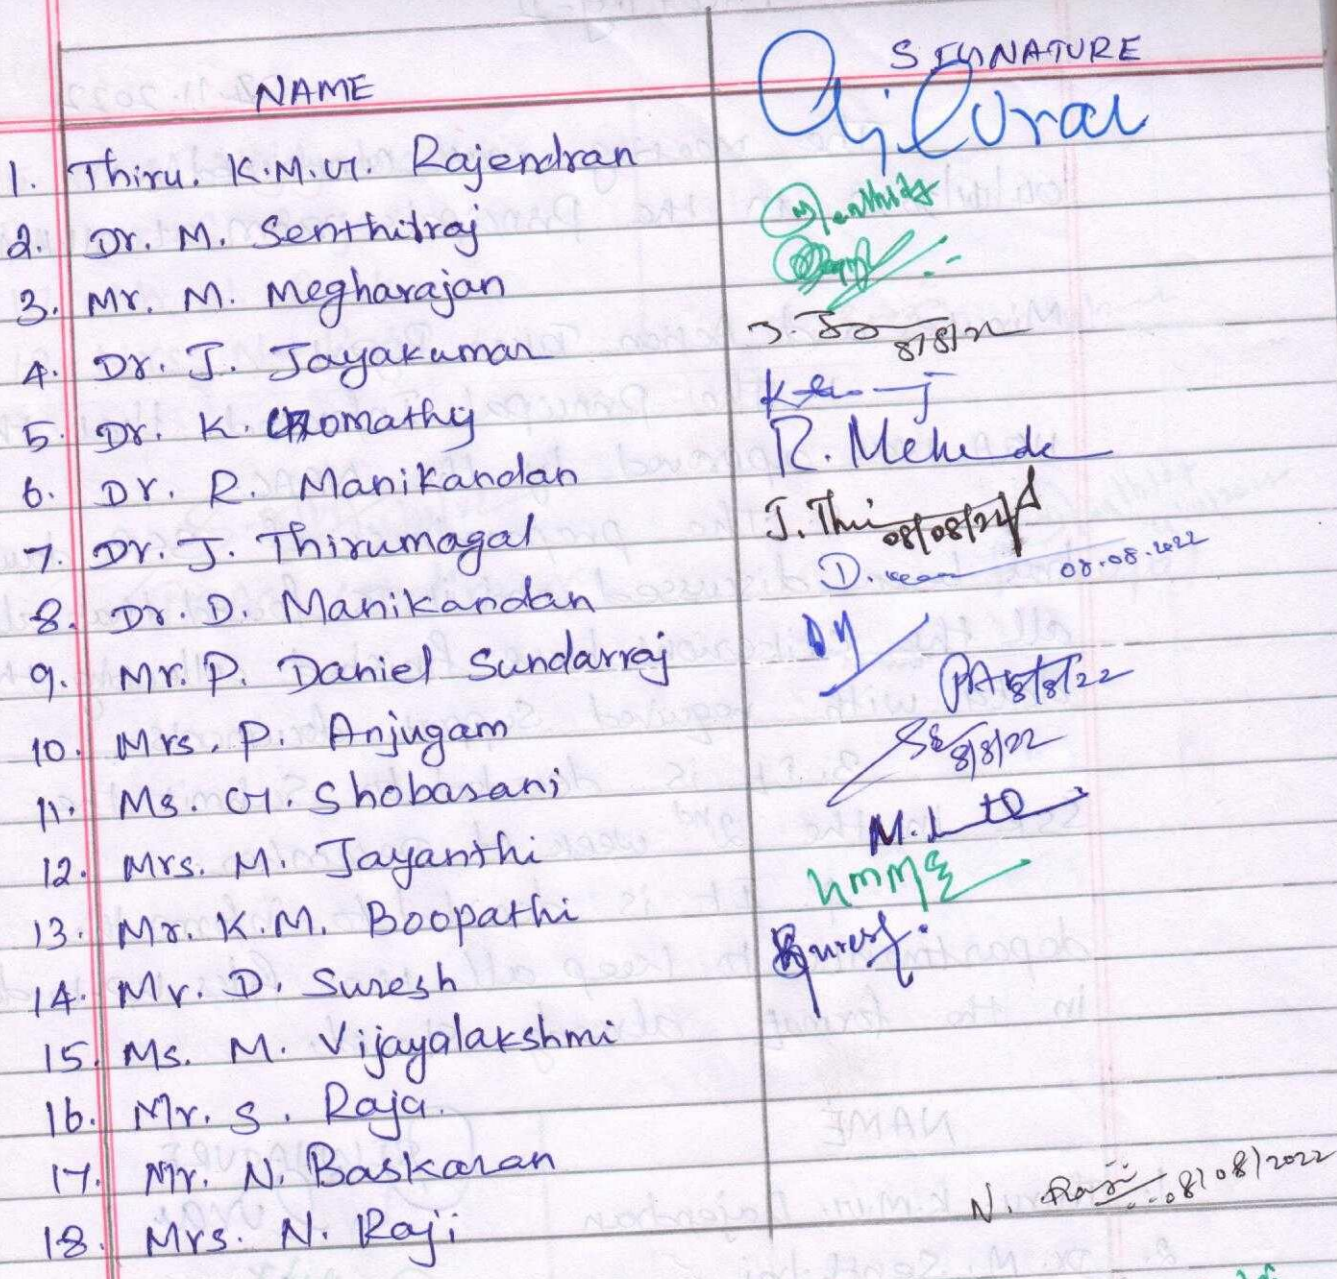 NAME SIGNATURE
1. Thiru. K.M.G. Rajendran
2. Dr. M. Senthilraj
3. Mr. M. Megharajan
4. Dr. J. Jayakumar 8/8/22
5. Dr. K. Gomathy
6. Dr. R. Manikandan R.
7. Dr. J. Thirumagal J. Thi 08/08/22
8. Dr. D. Manikandan D. 08.08.2022
9. Mr. P. Daniel Sundarraj
10. Mrs. P. Anjugam 8/8/22
11. Ms. G. Shobarani 8/8/22
12. Mrs. M. Jayanthi M.
13. Mr. K.M. Boopathi
14. Mr. D. Suresh Suresh
15. Ms. M. Vijayalakshmi
16. Mr. S. Raja
17. Mr. N. Baskaran
18. Mrs. N. Raji N. Raji 08/08/2022